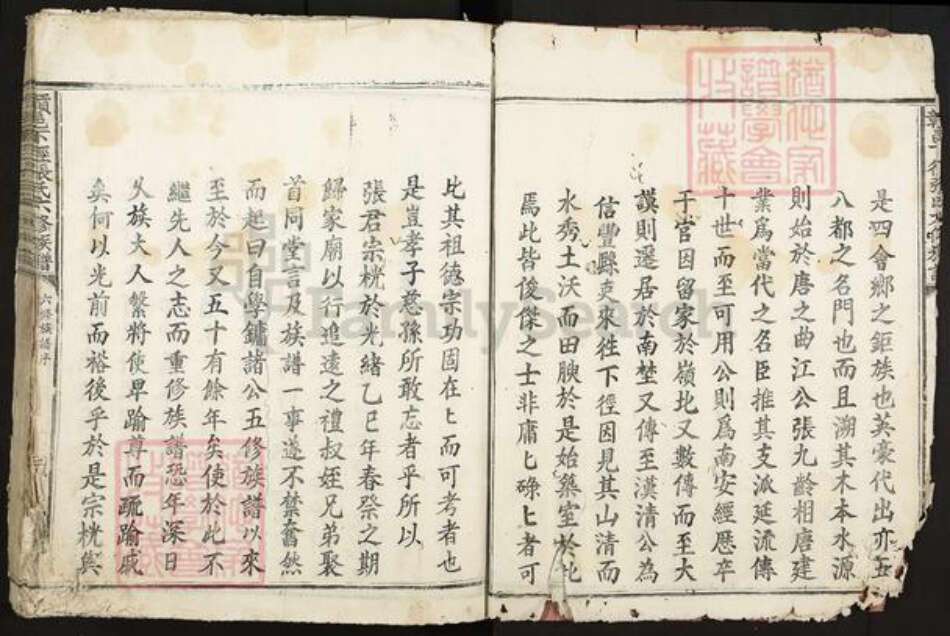 是四會鄉之鉅族也英豪代出亦五
八都之名門也而且溯其木本水源
則始於唐之曲江公張九齡相唐建
業爲當代之名臣推其支派延流傳
十世而至可用公則爲南安經歷卒
于官因留家於嶺北又數傳而至大
謨則遷居於南埜又傳至漢清公爲
信豐縣吏來往下徑因見其山清而
水秀土沃而田腴於是始築室於此
焉此皆俊傑之士非庸匕碌匕者可
比其祖德宗功固在匕而可考者也
是豈孝子慈孫所敢忘者乎所以
張君宗桄於光緒乙巳年春祭之期
歸家廟以行追遠之禮叔姪兄弟聚
首同堂言及族譜一事遂不禁奮然
而起曰自學鏞諸公五修族譜以來
至於今又五十有餘年矣使於此不
繼先人之志而重修族譜恐年深日
乆族大人繁將使卑踰尊而疏踰戚
矣何以光前而裕後乎於是宗桄與
下徑張氏六修族譜
六修族譜序
譜學會
收藏
FamilySearch